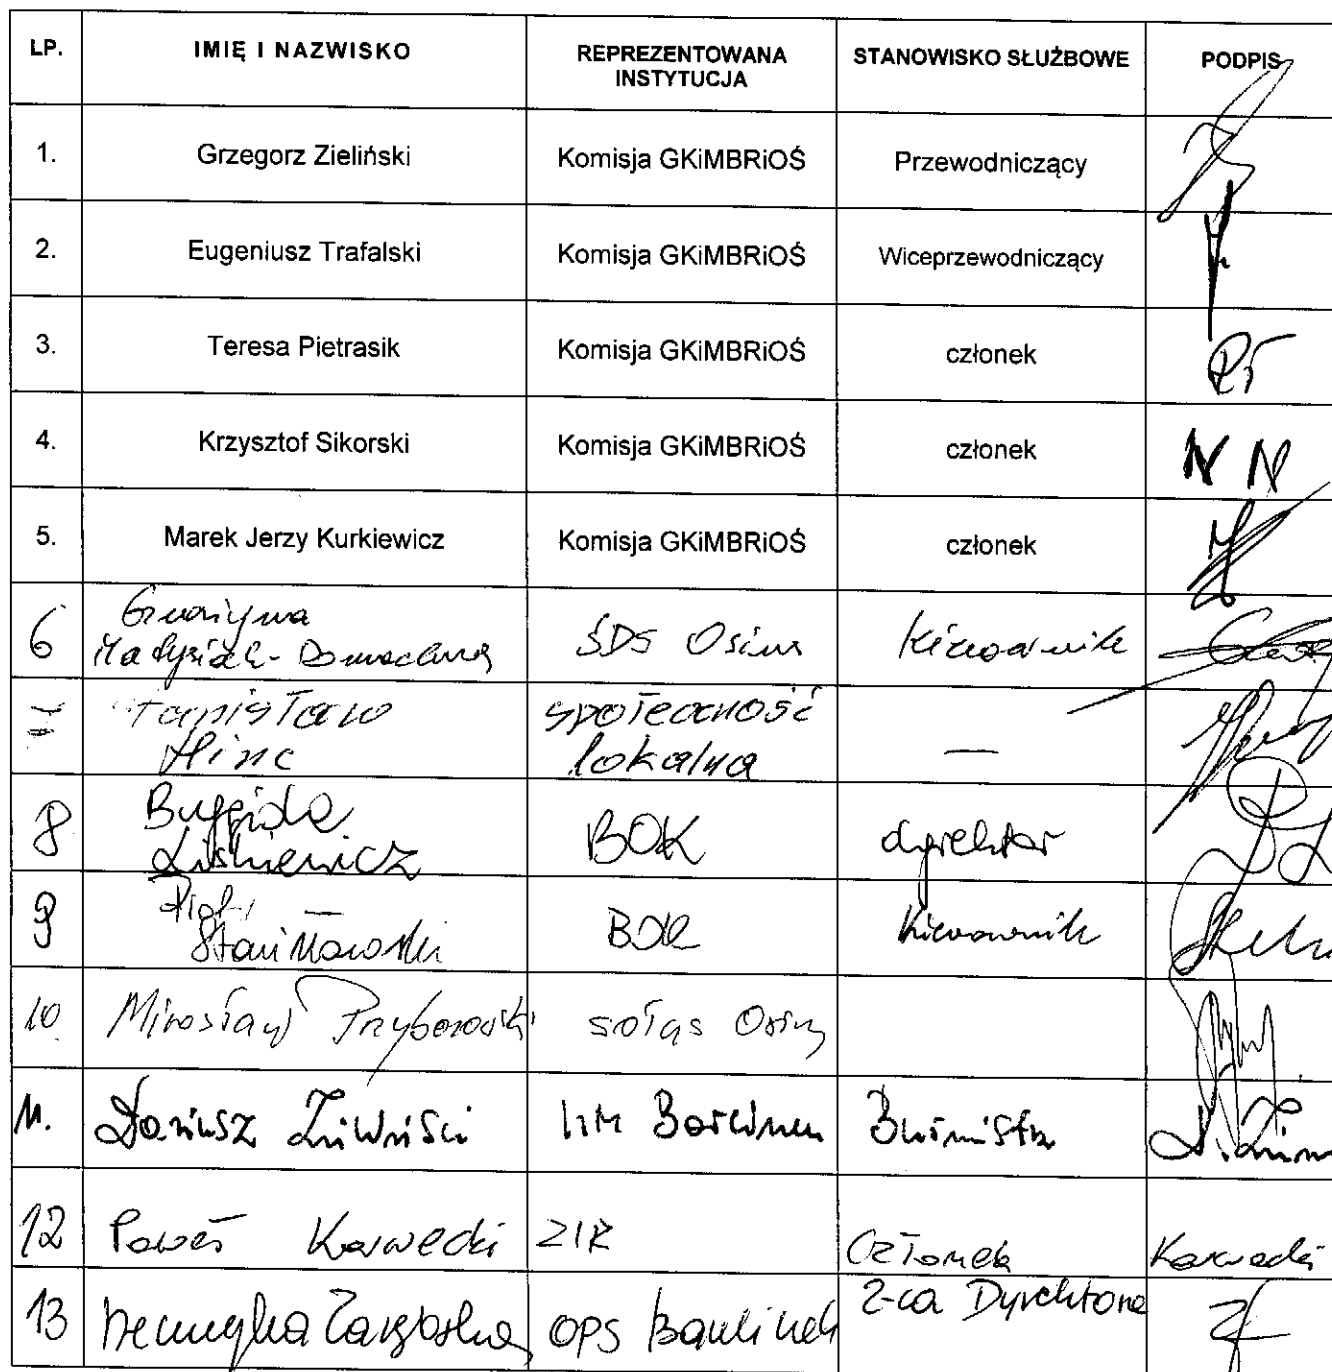 LP. IMIĘ I NAZWISKO REPREZENTOWANA INSTYTUCJA STANOWISKO SŁUŻBOWE PODPIS
1. Grzegorz Zieliński Komisja GKiMBRiOŚ Przewodniczący
2. Eugeniusz Trafalski Komisja GKiMBRiOŚ Wiceprzewodniczący
3. Teresa Pietrasik Komisja GKiMBRiOŚ członek
4. Krzysztof Sikorski Komisja GKiMBRiOŚ członek NN
5. Marek Jerzy Kurkiewicz Komisja GKiMBRiOŚ członek
6 Grażyna
ŚDS Kierownik
Hinc
społeczność
lokalna —
8 BOK dyrektor
9 Piotr
BOK Kierownik
10. Mirosław Przyborowski sołtys
11. Dariusz UM Barcinen Burmistrz
12 Paweł Karwecki ZIR Członek Karwecki
13 OPS Z-ca Dyrektora